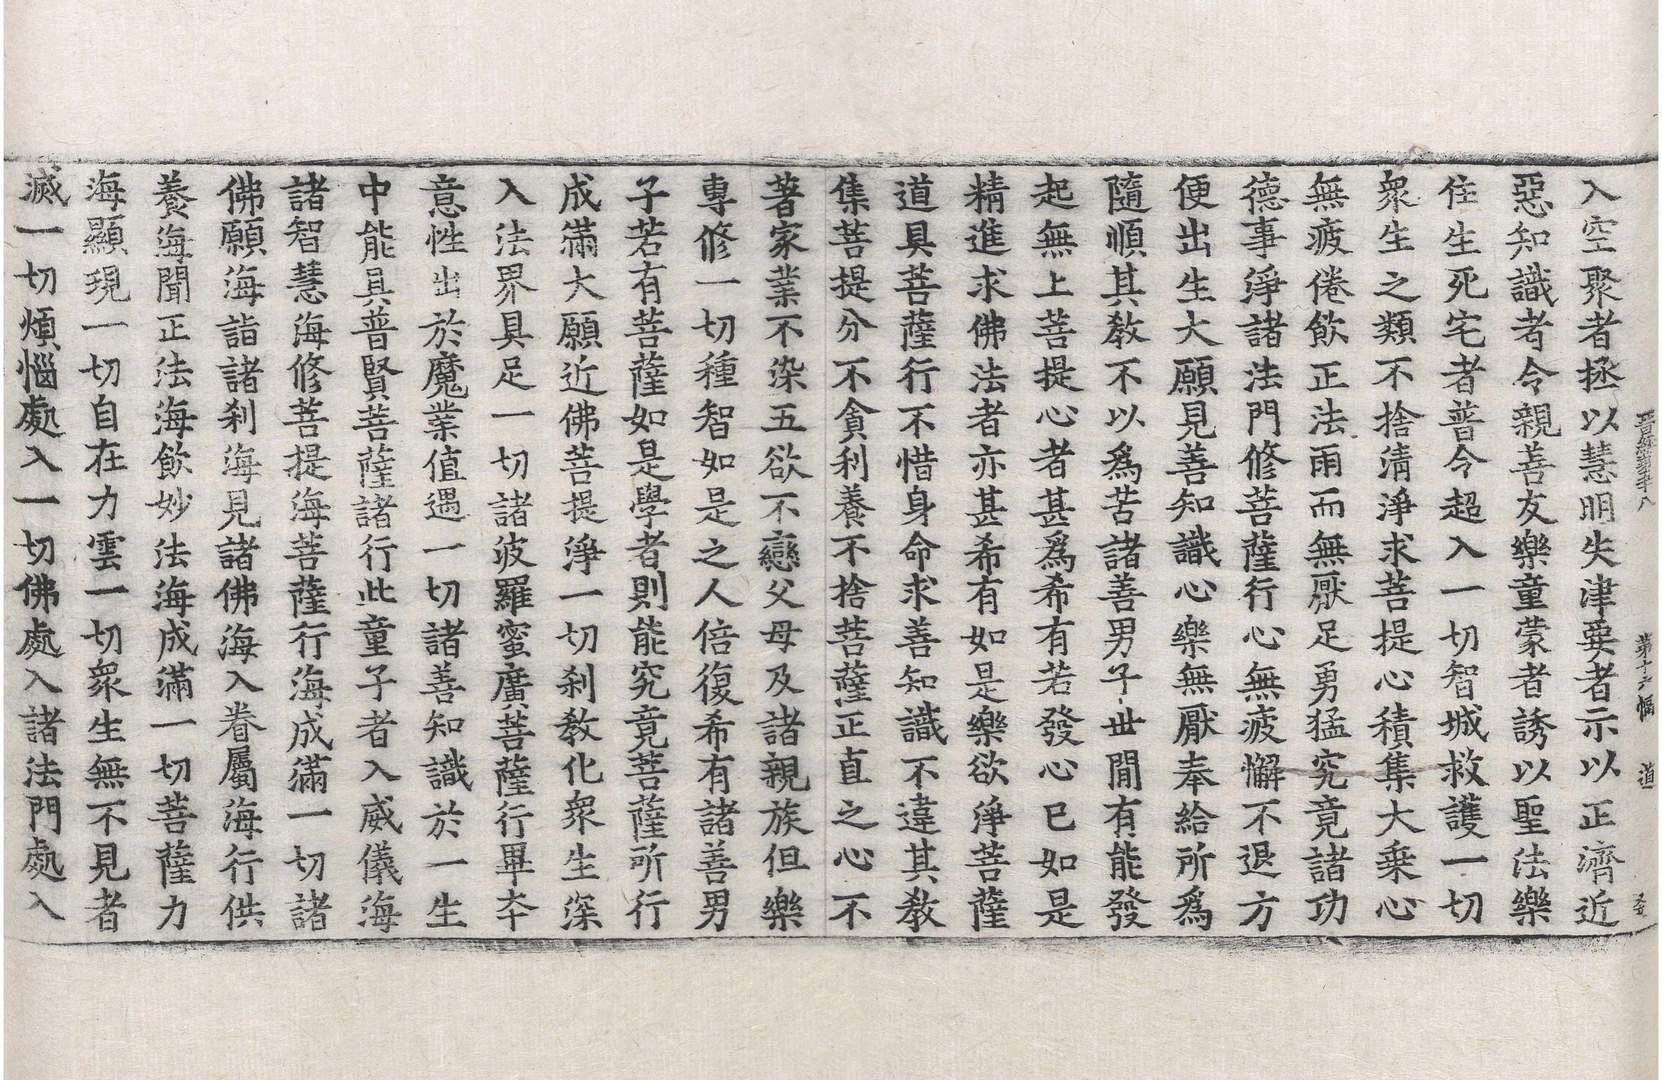 第十六幅 道
入空聚者拯以慧明失津要者示以正濟近
惡知識者令親善友樂童蒙者誘以聖法樂
住生死宅者普令超入一切智城救護一切
衆生之類不捨清淨求菩提心積集大乘心
無疲倦飲正法雨而無厭足勇猛究竟諸功
德事淨諸法門修菩薩行心無疲懈不退方
便出生大願見善知識心樂無厭奉給所爲
隨順其教不以爲苦諸善男子世閒有能發
起無上菩提心者甚爲希有若發心已如是
精進求佛法者亦甚希有如是樂欲淨菩薩
道具菩薩行不惜身命求善知識不違其教
集菩提分不貪利養不捨菩薩正直之心不
著家業不染五欲不戀父母及諸親族但樂
專修一切種智如是之人倍復希有諸善男
子若有菩薩如是學者則能究竟菩薩所行
成滿大願近佛菩提淨一切刹教化衆生深
入法界具足一切諸波羅蜜廣菩薩行畢本
意性出於魔業值遇一切諸善知識於一生
中能具普賢菩薩諸行此童子者入威儀海
諸智慧海修菩提海菩薩行海成滿一切諸
佛願海詣諸刹海見諸佛海入眷屬海行供
養海聞正法海飲妙法海成滿一切菩薩力
海顯現一切自在力雲一切衆生無不見者
滅一切煩惱處入一切佛處入諸法門處入